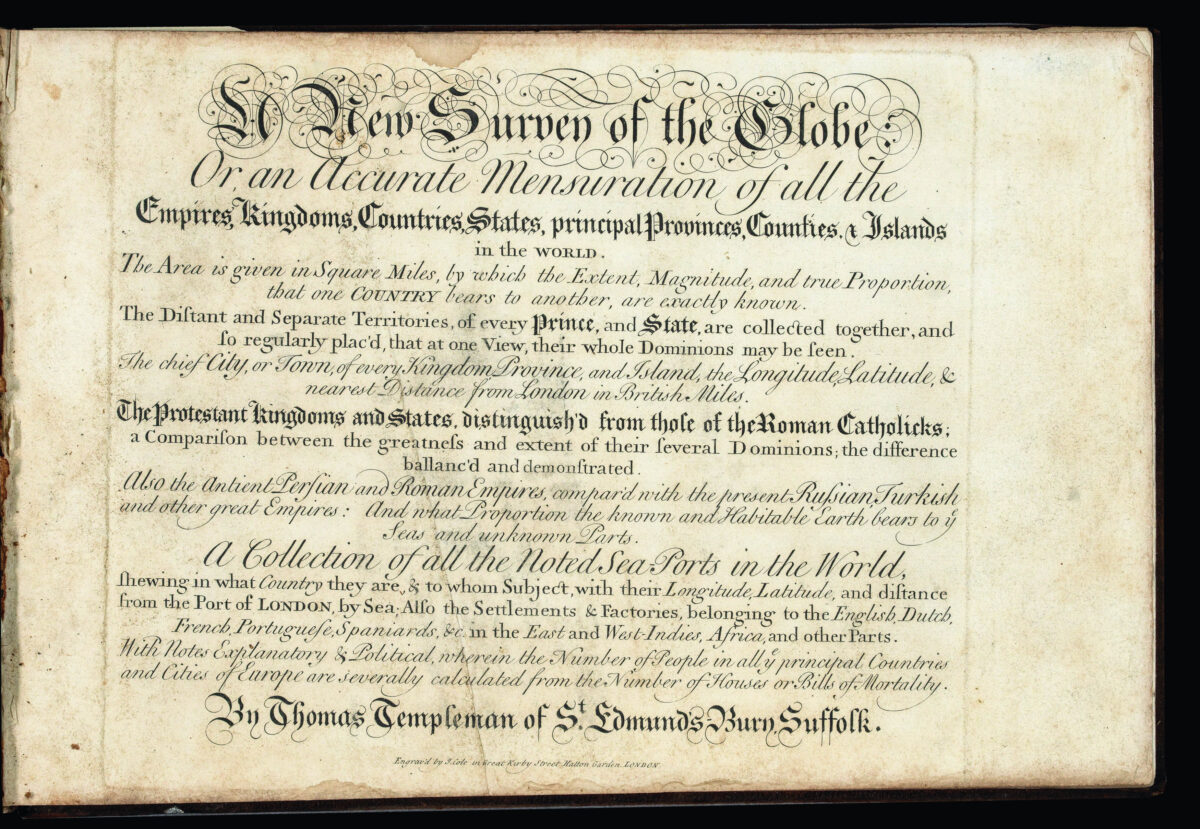 A New Survey of the Globe:
Or, an Accurate Mensuration of all the
Empires, Kingdoms, Countries, States, principal Provinces, Counties, & Islands
in the WORLD.
The Area is given in Square Miles, by which the Extent, Magnitude, and true Proportion,
that one COUNTRY bears to another, are exactly known.
The Diſtant and Separate Territories, of every Prince, and State, are collected together, and
ſo regularly plac'd, that at one View, their whole Dominions may be ſeen.
The chief City, or Town, of every Kingdom, Province, and Island, the Longitude, Latitude, &
nearest Distance from London in British Miles.
The Protestant Kingdoms and States, distinguish'd from thoſe of the Roman Catholicks;
a Compariſon between the greatneſs and extent of their ſeveral Dominions; the difference
ballanc'd and demonſtrated.
Also the Antient Perſian and Roman Empires, compar'd with the present Ruſsian, Turkish
and other great Empires: And what Proportion the known and Habitable Earth bears to ẏ
Seas and unknown Parts.
A Collection of all the Noted Sea Ports in the World,
ſhewing in what Country they are, & to whom Subject, with their Longitude, Latitude, and diſtance
from the Port of LONDON, by Sea; Alſo the Settlements & Factories, belonging to the English, Dutch,
French, Portugueſe, Spaniards, &c. in the East and West-Indies, Africa, and other Parts.
With Notes Explanatory & Political, wherein the Number of People in all ẏ principal Countries
and Cities of Europe are severally calculated from the Number of Houses or Bills of Mortality.
By Thomas Templeman of St. Edmund's-Bury, Suffolk.
Engrav'd by J. Cole in Great Kirby Street, Hatton Garden. LONDON.